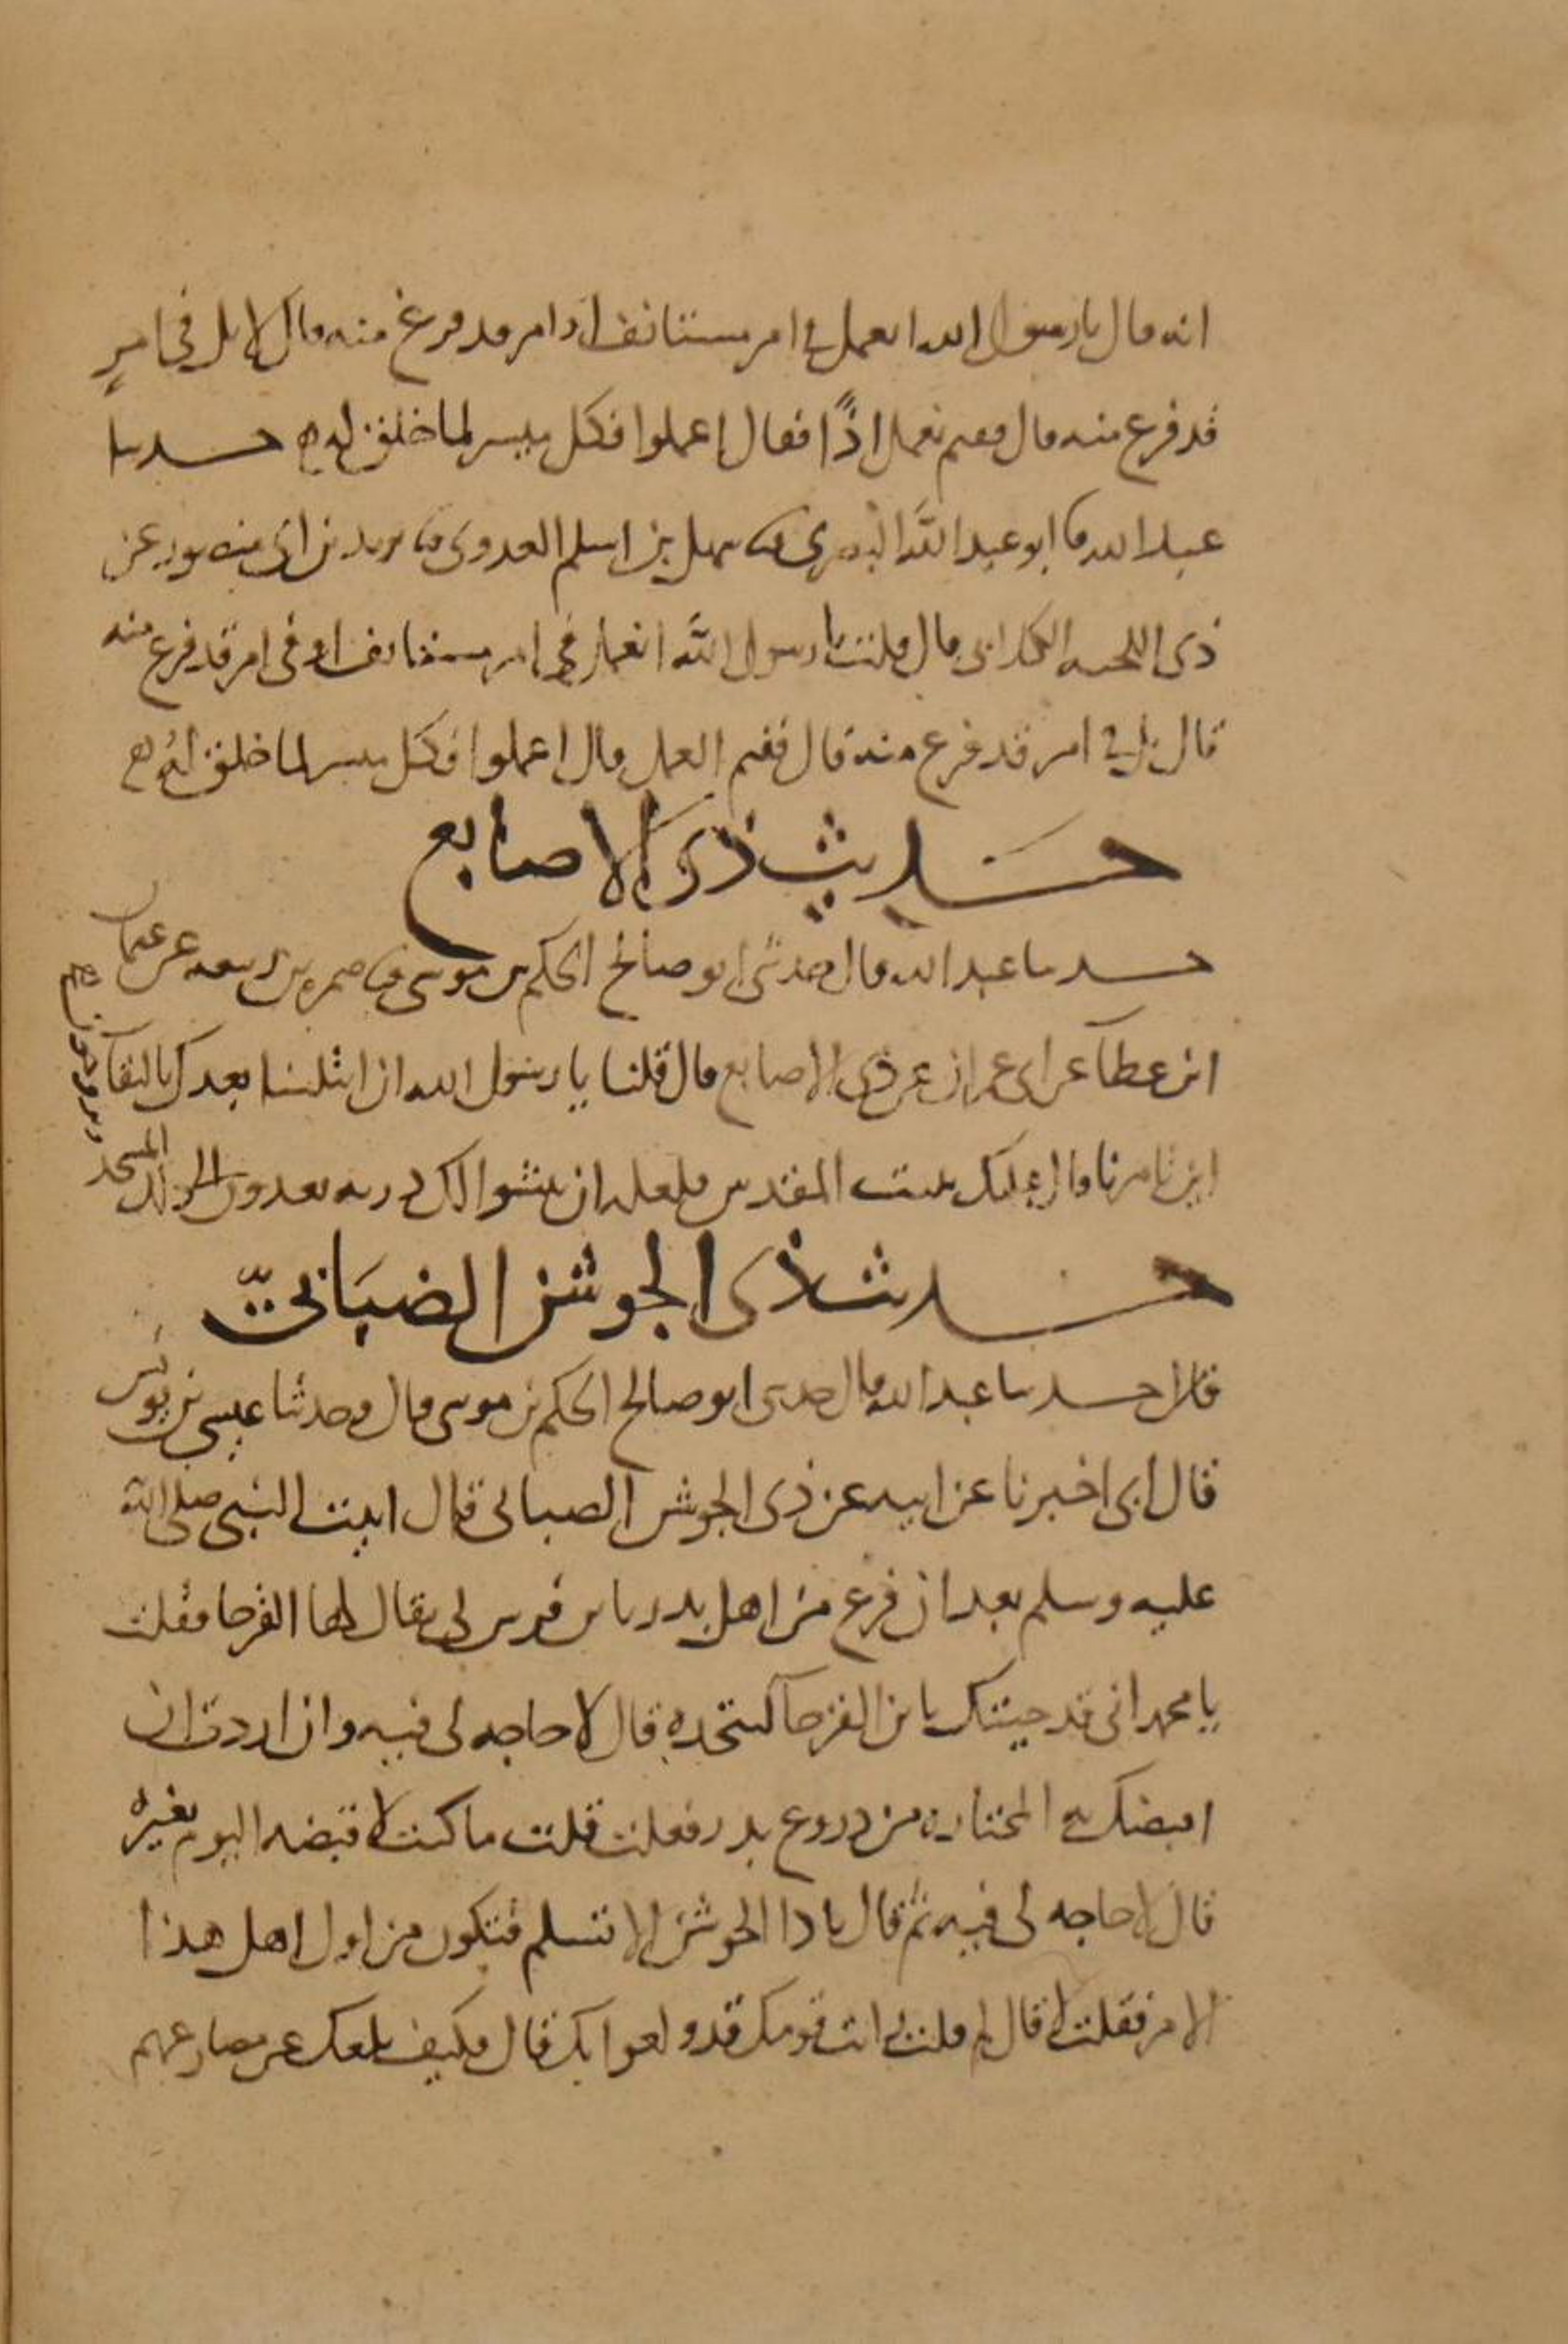 انه قال يا رسول الله انعمل في امر مستانف او امر قد فرغ منه قال لا بل في امرٍ
قد فرغ منه قال ففيم نعمل اذًا فقال اعملوا فكل ميسر لما خلق له حدثنا
عبد الله ثنا ابو عبد الله البصري ثنا سهل بن اسلم العدوى ثنا يزيد بن ابى منصور عن
ذى اللحيه الكلابى قال قلت يا رسول الله انعمل في امر مستانف او فى امر قد فرغ منه
قال بل في امر قد فرغ منه قال ففيم العمل قال اعملوا فكل ميسر لما خلق له
حديث ذى الاصابع
حدثنا عبد الله قال حدثنى ابو صالح الحكم بن موسى ثنا ضمره بن ربيعه عن عثمان
ابن عطا عن ابى عمران عن ذى الاصابع قال قلنا يا رسول الله ان ابتلينا بعدك بالبقآ
اين تامرنا قال عليك ببيت المقدس فلعله ان ينشوا لك ذريه يغدون الى ذلك المسجد
ويروحون
حديث ذى الجوشن الضبابىّ
قال حدثنا عبد الله قال حدثنى ابو صالح الحكم بن موسى قال وحدثنا عيسى بن يونس
قال ابى اخبرنا عن ابيه عن ذى الجوشن الضبابى قال اتيت النبى صلى الله
عليه وسلم بعد ان فرغ من اهل بدر بابن فرس لى يقال لها القرحا فقلت
يا محمد انى قد جيتك بابن القرحآ لتتخذه قال لا حاجه لى فيه وان اردت ان
اقيضك به المختاره من دروع بدر فعلت قلت ما كنت لاقيضه اليوم بغيره
قال لا حاجه لى فيه ثم قال يا ذا الجوشن الا تسلم فتكون من اول اهل هذا
الامر فقلت لا قال لم قلت انى رايت قومك قد ولعوا بك قال فكيف بلغك عن مصارعهم